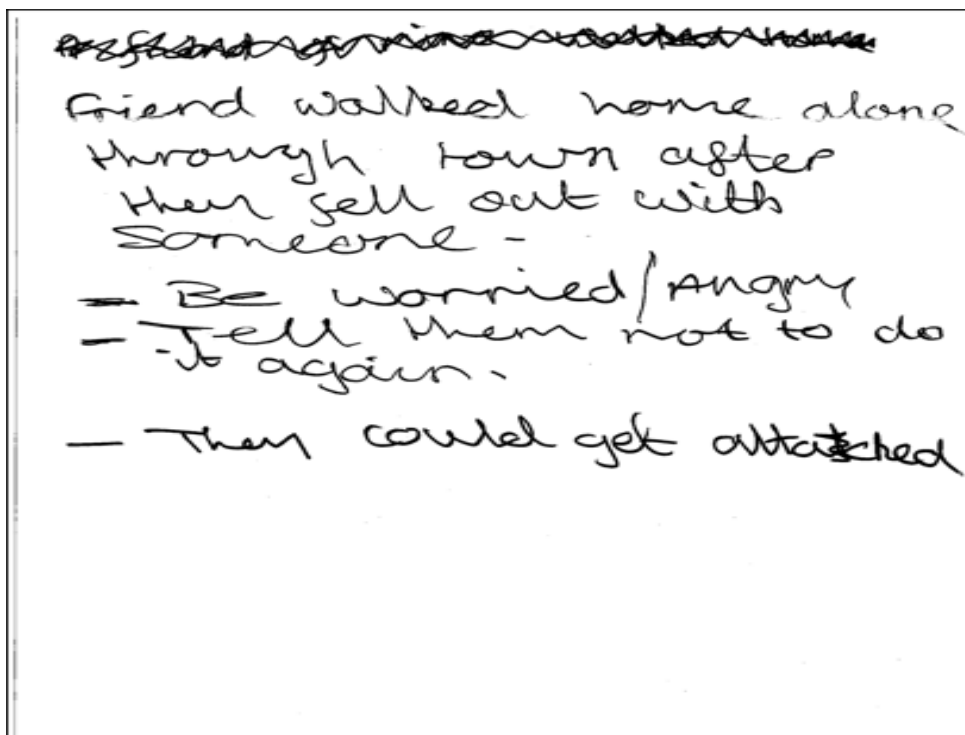 A friend of mine walked home
Friend walked home alone
through town after
they fell out with
Someone -
- Be worried/Angry
- Tell them not to do
it again.
- They could get attatched